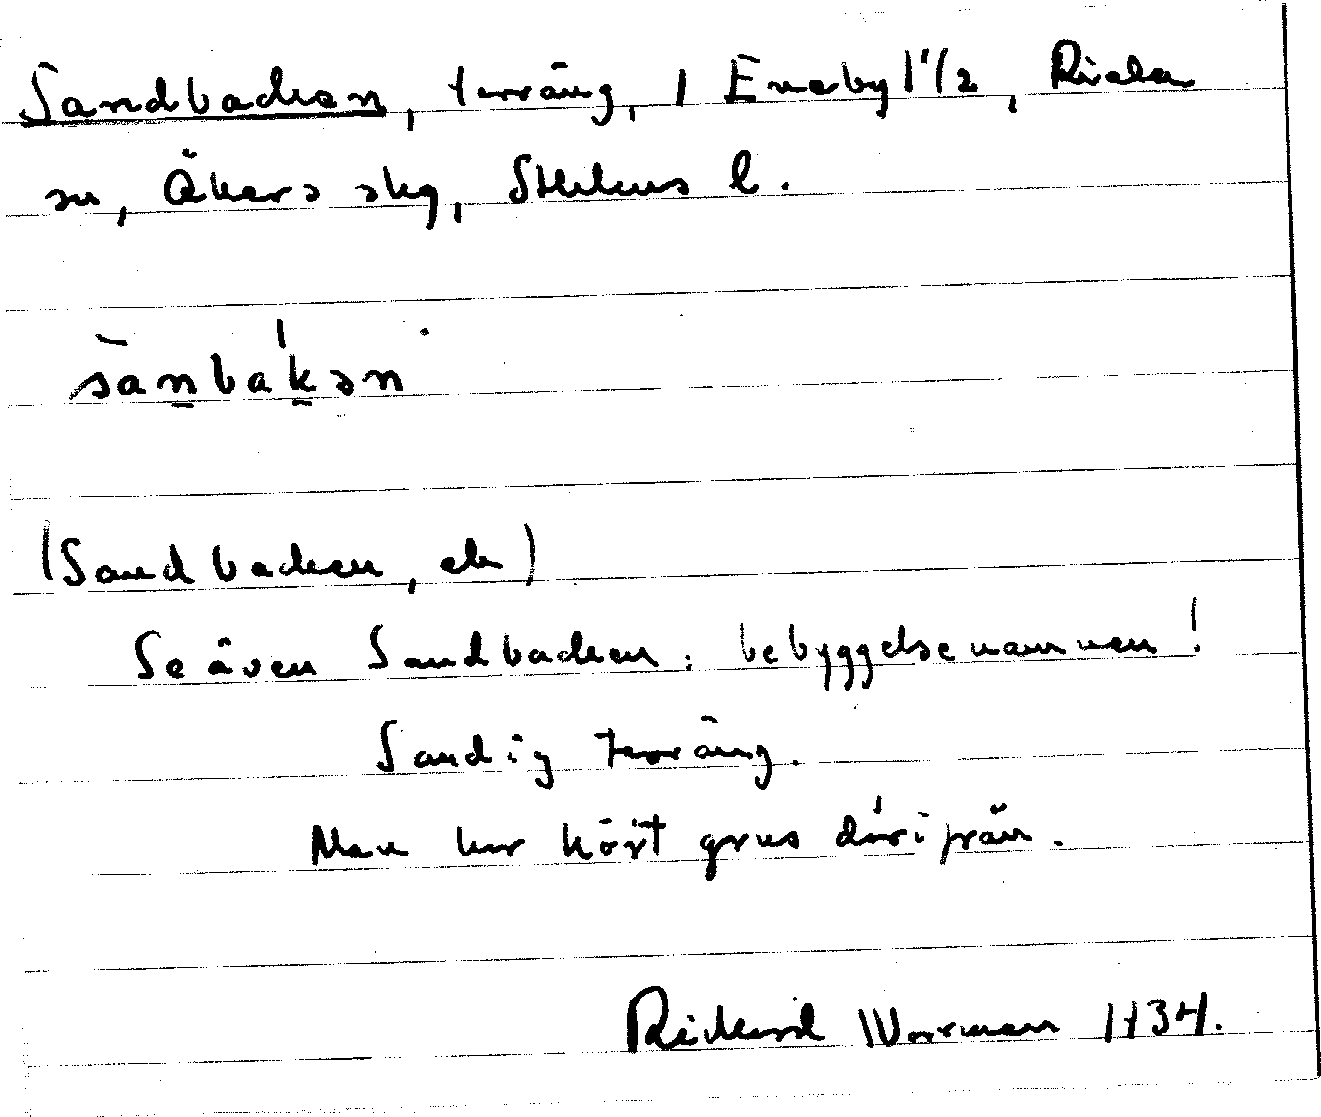 Sandbacken, terräng, 1 Eneby 1 1/2, Riala
sn, Åkers skg, Sthlms l.
sànbákən
(Sandbacken, etc)
Se även Sandbacken: bebyggelsenamnen!
Sandig terräng.
Man har kört grus därifrån.
Rickard Worman 1934.